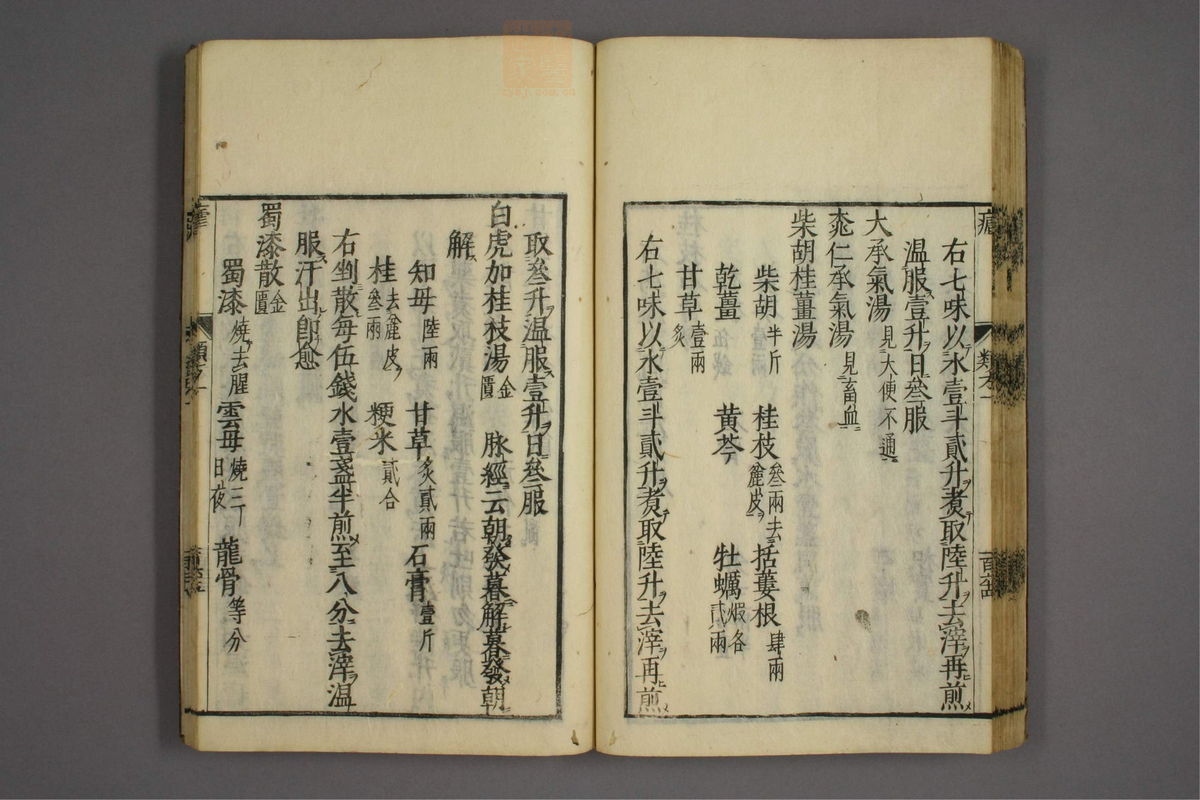 右七味以水壹斗貳升煑取陸升去滓再煎
温服壹升日叄服
大承氣湯見大便不通
桃仁承氣湯見畜血
柴胡桂薑湯
柴胡半斤 桂枝叄兩去麄皮 括蔞根肆兩
乾薑 黄芩 牡蠣煆各貳兩
甘草壹兩炙
右七味以水壹斗貳升煑取陸升去滓再煎
取叄升温服壹升日叄服
白虎加桂枝湯金匱 脉經云朝發暮解暮發朝
解
知母陸兩 甘草炙貳兩 石膏壹斤
桂去麄皮叄兩 粳米貳合
右剉散每伍錢水壹盞半煎至八分去滓温
服汗出卽愈
蜀漆散金匱
蜀漆燒去腥 雲母燒二日夜 龍骨等分